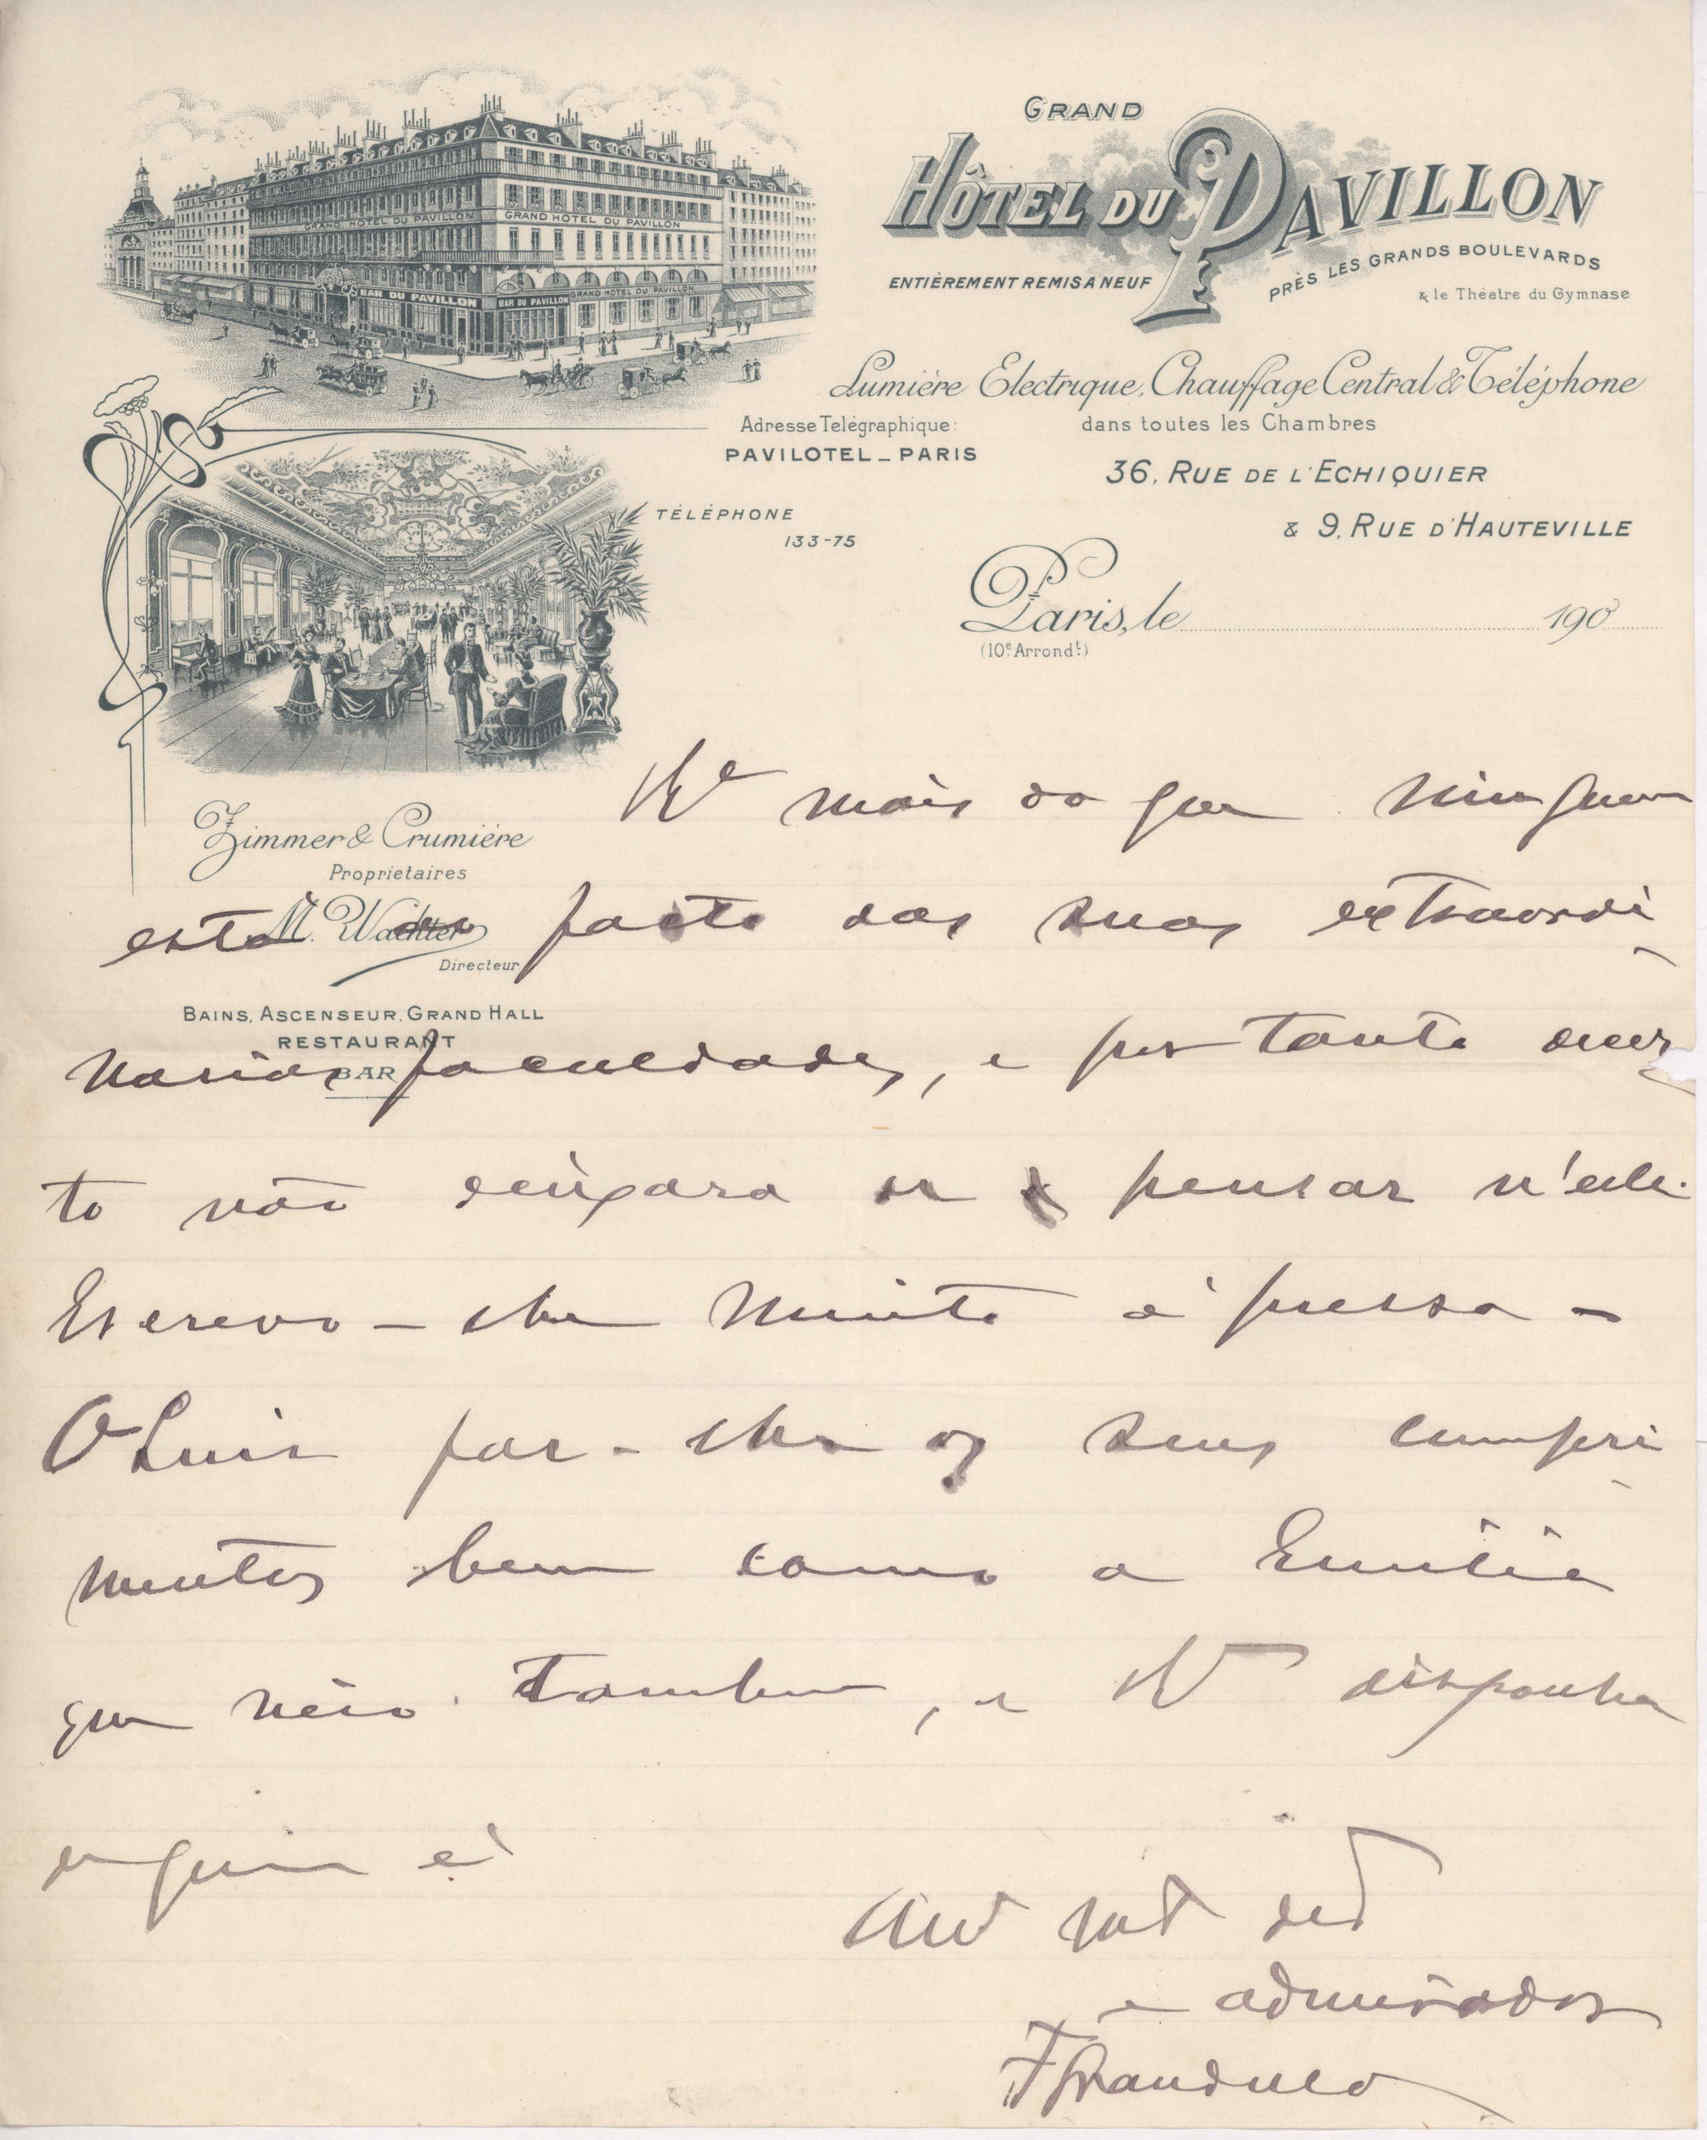 GRAND
HÔTEL DU PAVILLON
ENTIÈREMENT REMIS A NEUF
PRÈS LES GRANDS BOULEVARDS
& le Théatre du Gymnase
GRAND HOTEL DU PAVILLON
GRAND HOTEL DU PAVILLON
BAR DU PAVILLON
BAR DU PAVILLON
GRAND HOTEL DU PAVILLON
Lumière Electrique, Chauffage Central & Téléphone
dans toutes les Chambres
Adresse Télégraphique:
PAVILOTEL _ PARIS
36, RUE DE L'ECHIQUIER
& 9, RUE D'HAUTEVILLE
TÉLÉPHONE
133-75
Paris, le 190
(10e Arrondt)
Zimmer & Crumière
Propriétaires
M. Wachter
Directeur
BAINS, ASCENSEUR, GRAND HALL
RESTAURANT
BAR
mais do que ninguem
está ao facto das suas extraordi
narias faculdades, e por tanto
to não deixara de pensar n'elle.
Escrevo-lhe muito á pressa -
O Luis faz-lhe os seus cumpri
mentos bem como a Emilia
que veio tambem, e V disponha
de quem é
Amo
e admirador